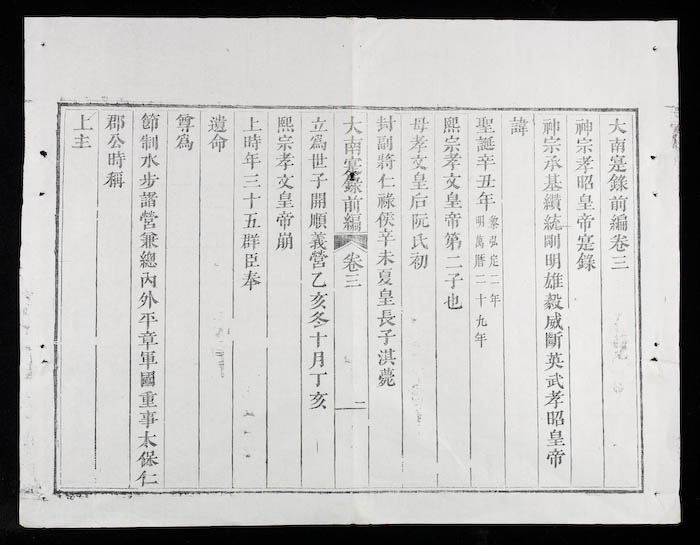 大南寔錄前編卷三
神宗孝昭皇帝寔錄
神宗承基纘統剛明雄毅威斷英武孝昭皇帝
諱
聖誕辛丑年黎弘定二年明萬曆二十九年
熙宗孝文皇帝第二子也
母孝文皇后阮氏初
封副將仁祿侯辛未夏皇長子淇薨
大南寔錄前編 卷三 一
立為世子開順義營乙亥冬十月丁亥
熙宗孝文皇帝崩
上時年三十五群臣奉
遺命
尊為
節制水步諸營兼總內外平章軍國重事太保仁
郡公時稱
上主